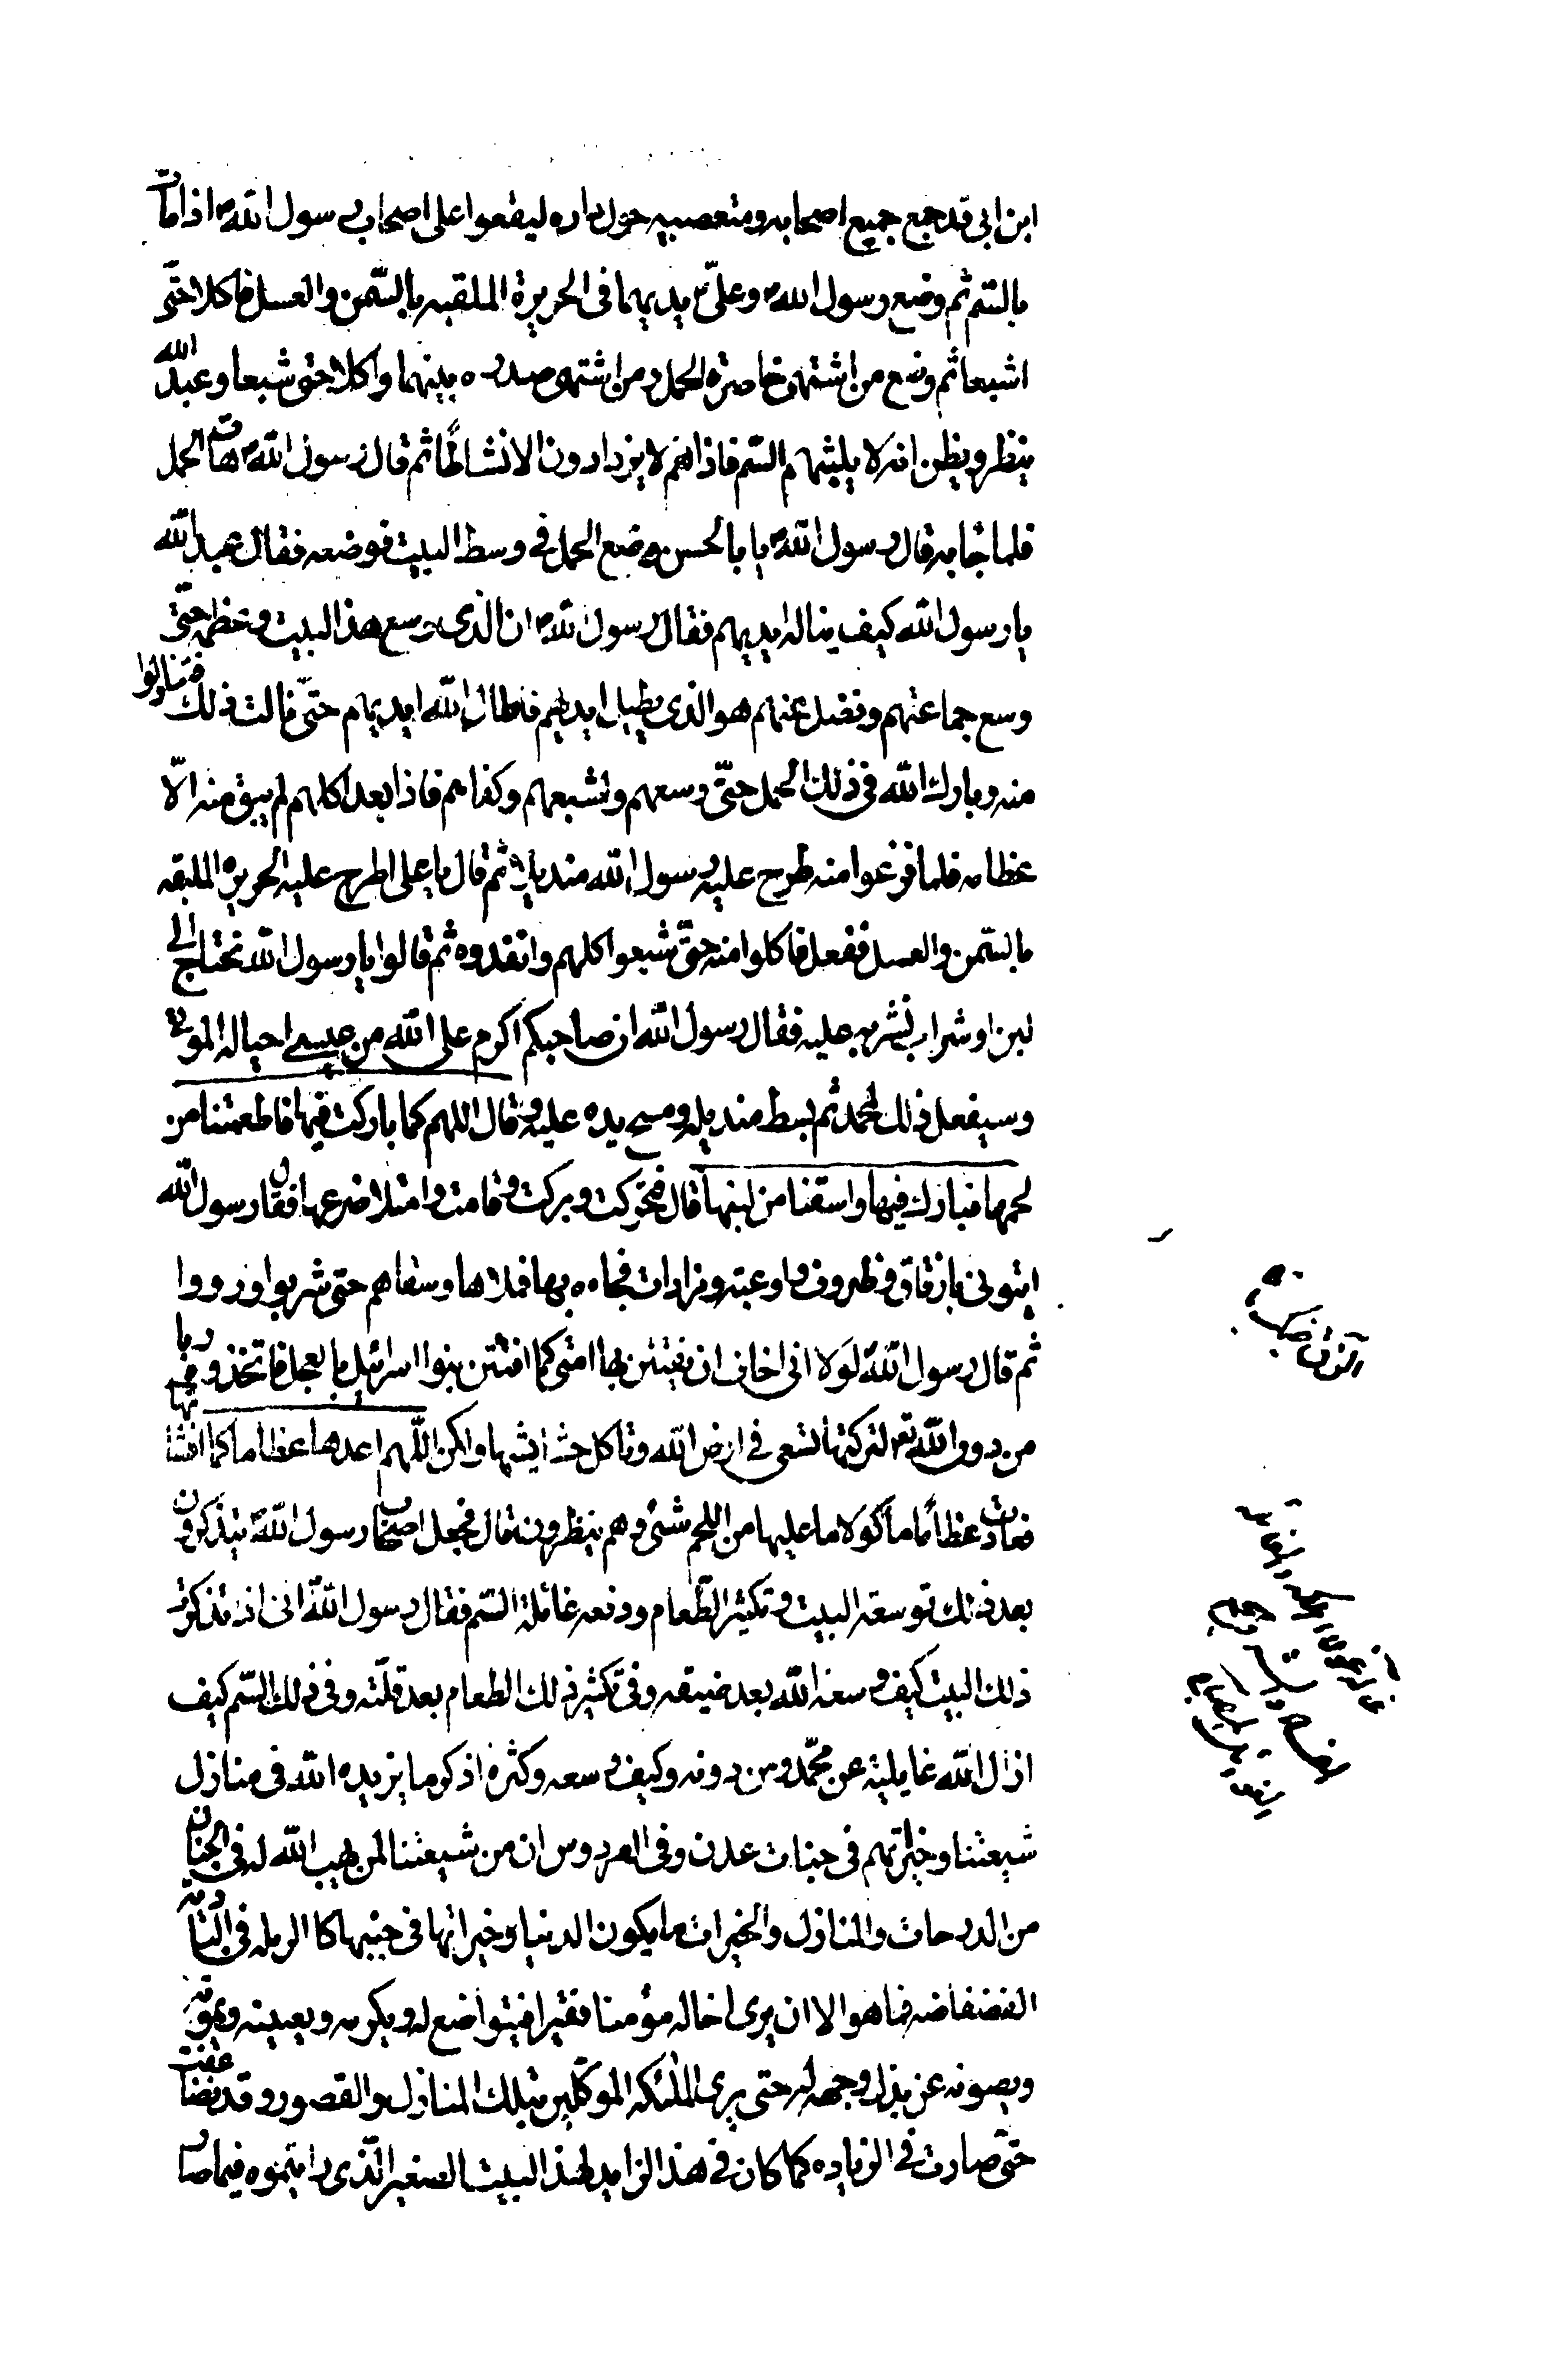 ابن ابی قد جمع جمیع اصحابه و متعصبیه حول داره لیقعوا علی اصحاب رسول الله ص اذا مات
بالسّم ثم وضع رسول الله ص و علیّ ع یدیهما فی الحریرة الملقبه بالسّمن و العسل فاکلا حتّی
اشبعا ثم وضع من اشتهی خاصرة الحمل و من اشتهی صدره بینهما و اکلا حتی شبعا و عبد الله
ینظر و یظن انه لا یلبثهم السّم فاذا هم لا یزدادون الا نشاطًا ثم قال رسول الله ص هات الحمل
فلما جٔا به قال رسول الله ص یا با الحسن وضع الحمل فی وسط البیت فوضعه فقال عبد الله
یا رسول الله کیف یناله ایدیهم فقال رسول الله ص ان الذی وسع هذا البیت و عظمه حتّی
وسع جماعتهم و فضل عنهم هو الذی یطیل ایدیهم فاطال الله ایدیهم حتّی نالت ذلک فتناولوا
منه و بارک الله فی ذلک الحمل حتّی وسعهم و اشبعهم و کفاهم فاذا بعد اکلهم لم یبق منه الّا
عظامه فلما فرغوا منه طرح علیه رسول الله مندیلا ثم قال یا علی اطرح علیه الحریره الملبقه
بالسّمن و العسل ففعل فاکلوا منه حتّی شبعوا کلهم و انفدوه ثم قالوا یا رسول الله نحتاج الی
لبن او شراب نشربه علیه فقال رسول الله ان صاحبکم اکرم علی الله من عیسی احیا له الموتی
و سیفعل ذلک لمحمد ثم بسط مندیله و مسح یده علیه و قال اللهم کما بارکت فیها فاطعمتنا من
لحمها فبارک فیها و اسقنا من لبنها قال فتحرکت و برکت و قامت و امتلا ضرعها فقال رسول الله
ایتونی بازقاق و ظروف و اوعیته و مزادات فجاءه بها فملاها و سقاهم حتی شربوا و رووا
ثم قال رسول الله ص لولا انی اخاف ان یفتتن بها امتی کما افتتن بنوا اسرائیل بالعجل فاتخذوه ربا
من دون الله تع لترکتها تسعی فی ارض الله و تاکل من حشایشها و لکن اللّهم اعدها عظاما کما انشاتها
فعادت عظامًا ماکولا ما علیها من اللحم شئ و هم ینظرونه قال فجعل اصحاب رسول الله ص یتذکرون
بعد ذلک توسعة البیت و تکثیر الطّعام و دفعه غائلة السّم فقال رسول الله ص انی اذا تذکرت
ذلک البیت کیف وسعه الله بعد ضیقه و فی تکثیر ذلک الطعام بعد قلّته و فی ذلک السّم کیف
ازال الله غایلته عن محمّد و من دونه و کیف وسعه و کثره اذکر ما یزیده الله فی منازل
شیعتنا و خیراتهم فی جنات عدن و فی الفردوس ان من شیعتنا لمن یهب الله له فی الجنان
من الدرجات و المنازل و الخیرات ما یکون الدنیا و خیراتها فی جنبها کا الرمله فی البادیة
الفضفاضه فما هو الا ان یری اخا له مؤمنا فقیرا فیتواضع له و یکرمه و یعینه و یمونه
و یصونه عن بذل وجهه له حتی یری الملئکه الموکّلین بتلک المنازل و القصور و قد تضاعفت
حتّی صارت فی الزیاده کما کان فی هذا الزاید لهذا البیت الصغیر الّذی رایتموه فیما صار